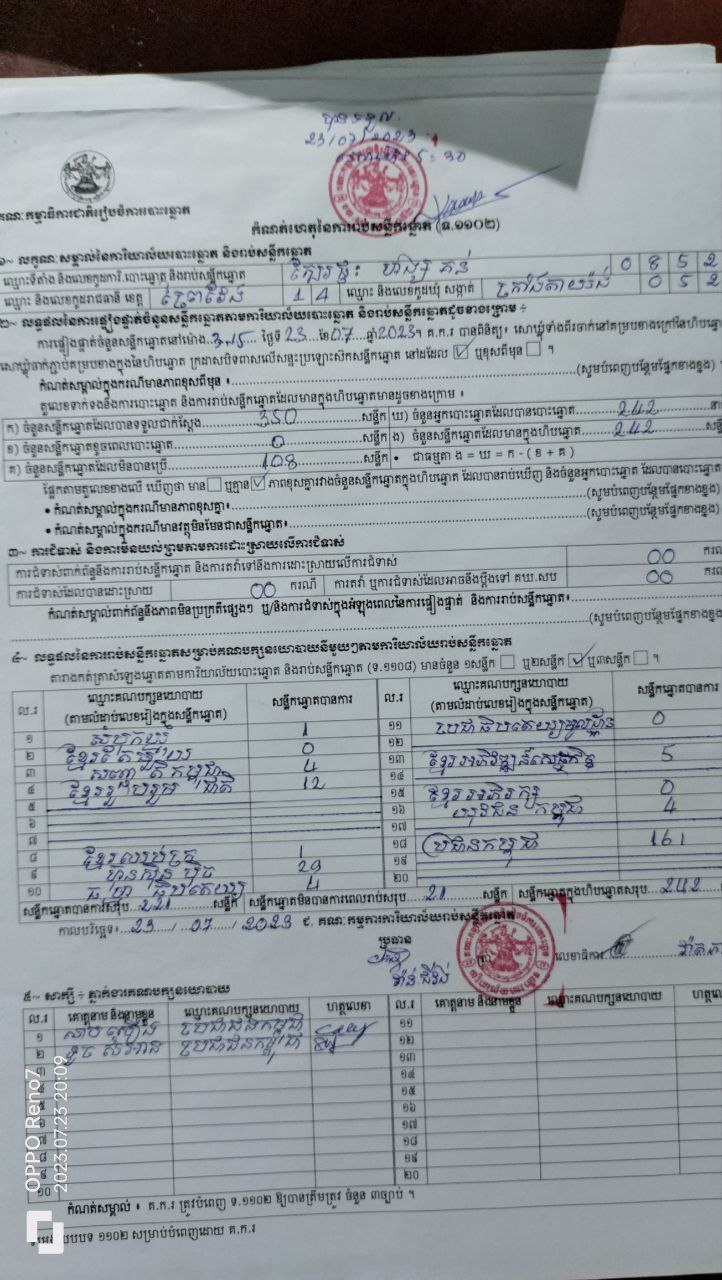 បានទទួល
23/07/2023
គណៈកម្មាធិការជាតិរៀបចំការបោះឆ្នោត
កំណត់ហេតុនៃការរាប់សន្លឹកឆ្នោត (ទ.១១០២)
១~ លក្ខណៈសម្គាល់នៃការិយាល័យបោះឆ្នោត និងរាប់សន្លឹកឆ្នោត
ឈ្មោះទីតាំង និងលេខកូដការិ.បោះឆ្នោត និងរាប់សន្លឹកឆ្នោត 0 8 5 2
ឈ្មោះ និងលេខកូដរាជធានី ខេត្ត ព្រៃវែង 1 4 ឈ្មោះ និងលេខកូដឃុំ សង្កាត់ 0 5 2
២~ លទ្ធផលនៃការផ្ទៀងផ្ទាត់ចំនួនសន្លឹកឆ្នោតតាមការិយាល័យបោះឆ្នោត និងរាប់សន្លឹកឆ្នោតដូចខាងក្រោម ÷
ការផ្ទៀងផ្ទាត់ចំនួនសន្លឹកឆ្នោតនៅម៉ោង 3:15 ថ្ងៃទី 23 ខែ 07 ឆ្នាំ 2023។ គ.ក.រ បានពិនិត្យ៖ សោឃ្លុំទាំងពីរចាក់នៅគម្របខាងក្រៅនៃហិបឆ្នោត
សោឃ្លុំចាក់ភ្ជាប់គម្របខាងក្នុងនៃហិបឆ្នោត ក្រដាសបិទពាសលើសន្ទះប្រឡោះស៊កសន្លឹកឆ្នោត នៅដដែល ☑ ឬខុសពីមុន ☐ ។
កំណត់សម្គាល់ក្នុងករណីមានភាពខុសពីមុន ៖ (សូមបំពេញបន្ថែមផ្នែកខាងខ្នង)
តួលេខទាក់ទងនឹងការបោះឆ្នោត និងការរាប់សន្លឹកឆ្នោតដែលមានក្នុងហិបឆ្នោតមានដូចខាងក្រោម ៖
ក) ចំនួនសន្លឹកឆ្នោតដែលបានទទួលជាក់ស្តែង 350 សន្លឹក ឃ) ចំនួនអ្នកបោះឆ្នោតដែលបានបោះឆ្នោត 242
ខ) ចំនួនសន្លឹកឆ្នោតខូចពេលបោះឆ្នោត 0 សន្លឹក ង) ចំនួនសន្លឹកឆ្នោតដែលមានក្នុងហិបឆ្នោត 242 សន្លឹក
គ) ចំនួនសន្លឹកឆ្នោតដែលមិនបានប្រើ 108 សន្លឹក • ជាធម្មតា ង = ឃ = ក - ( ខ + គ )
ផ្អែកតាមតួលេខខាងលើ ឃើញថា មាន ☐ ឬគ្មាន ☑ ភាពខុសគ្នារវាងចំនួនសន្លឹកឆ្នោតក្នុងហិបឆ្នោត ដែលបានរាប់ឃើញ និងចំនួនអ្នកបោះឆ្នោត ដែលបានបោះឆ្នោត
• កំណត់សម្គាល់ក្នុងករណីមានភាពខុសគ្នា៖ (សូមបំពេញបន្ថែមផ្នែកខាងខ្នង)
• កំណត់សម្គាល់ក្នុងករណីមានវត្ថុមិនមែនជាសន្លឹកឆ្នោត៖ (សូមបំពេញបន្ថែមផ្នែកខាងខ្នង)
៣~ ការជំទាស់ និងការមិនយល់ព្រមតាមការដោះស្រាយលើការជំទាស់
ការជំទាស់ពាក់ព័ន្ធនឹងការរាប់សន្លឹកឆ្នោត និងការតវ៉ាទៅនឹងការដោះស្រាយលើការជំទាស់ 00 ករណី
ការជំទាស់ដែលបានដោះស្រាយ 00 ករណី ការតវ៉ា ឬការជំទាស់ដែលអាចនឹងប្តឹងទៅ គឃ.សប 00 ករណី
កំណត់សម្គាល់ពាក់ព័ន្ធនឹងភាពមិនប្រក្រតីផ្សេងៗ ឬ/និងការជំទាស់ក្នុងអំឡុងពេលនៃការផ្ទៀងផ្ទាត់ និងការរាប់សន្លឹកឆ្នោត៖
(សូមបំពេញបន្ថែមផ្នែកខាងខ្នង)
៤~ លទ្ធផលនៃការរាប់សន្លឹកឆ្នោតសម្រាប់គណបក្សនយោបាយនីមួយៗតាមការិយាល័យរាប់សន្លឹកឆ្នោត
តារាងកត់ត្រាសំឡេងឆ្នោតតាមការិយាល័យបោះឆ្នោត និងរាប់សន្លឹកឆ្នោត (ទ.១១០៨) មានចំនួន ១សន្លឹក ☐ ឬ២សន្លឹក ☑ ឬ៣សន្លឹក ☐ ។
ល.រ ឈ្មោះគណបក្សនយោបាយ សន្លឹកឆ្នោតបានការ ល.រ ឈ្មោះគណបក្សនយោបាយ សន្លឹកឆ្នោតបានការ
(តាមលំដាប់លេខរៀងក្នុងសន្លឹកឆ្នោត) (តាមលំដាប់លេខរៀងក្នុងសន្លឹកឆ្នោត)
១ 1 ១១ ប្រជាធិបតេយ្យមូលដ្ឋាន 0
២ 0 ១២
៣ 4 ១៣ ខ្មែរអភិវឌ្ឍន៍សេដ្ឋកិច្ច 5
៤ ខ្មែររួបរួមជាតិ 12 ១៤
៥ ១៥ ខ្មែរអភិរក្ស 0
៦ ១៦ យុវជនកម្ពុជា 4
៧ ១៧
៨ 1 ១៨ ប្រជាជនកម្ពុជា 161
៩ ហ៊្វុនស៊ិនប៉ិច 29 ១៩
១០ ធម្មាធិបតេយ្យ 4 ២០
សន្លឹកឆ្នោតបានការសរុប 221 សន្លឹក សន្លឹកឆ្នោតមិនបានការពេលរាប់សរុប 21 សន្លឹក សន្លឹកឆ្នោតក្នុងហិបឆ្នោតសរុប 242
កាលបរិច្ឆេទ៖ 23 / 07 / 2023 ៩. គណៈកម្មការការិយាល័យរាប់សន្លឹកឆ្នោត
ប្រធាន លេខាធិការ
៥~ សាក្សី ÷ ភ្នាក់ងារគណបក្សនយោបាយ
ល.រ គោត្តនាម និងនាមខ្លួន ឈ្មោះគណបក្សនយោបាយ ហត្ថលេខា ល.រ គោត្តនាម និងនាមខ្លួន ឈ្មោះគណបក្សនយោបាយ ហត្ថលេខា
១ ប្រជាជនកម្ពុជា ១១
២ ប្រជាជនកម្ពុជា ១២
៣ ១៣
៤ ១៤
៥ ១៥
៦ ១៦
៧ ១៧
៨ ១៨
៩ ១៩
១០ ២០
កំណត់សម្គាល់ ៖ គ.ក.រ ត្រូវបំពេញ ទ.១១០២ ឱ្យបានត្រឹមត្រូវ ចំនួន ៣ច្បាប់ ។
១១០២ សម្រាប់បំពេញដោយ គ.ក.រ
OPPO Reno7
2023.07.23 20:09